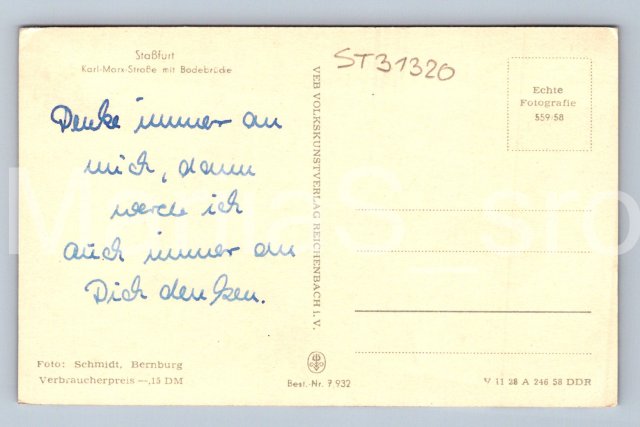 Staßfurt
Karl-Marx-Straße mit Bodebrücke
Denke immer an
mich, dann
werde ich
auch immer an
Dich denken.
Foto: Schmidt, Bernburg
Verbraucherpreis —,15 DM
VEB VOLKSKUNSTVERLAG REICHENBACH i. V.
Best.-Nr. 7 932
ST31320
Echte
Fotografie
559-58
V 11 28 A 246 58 DDR